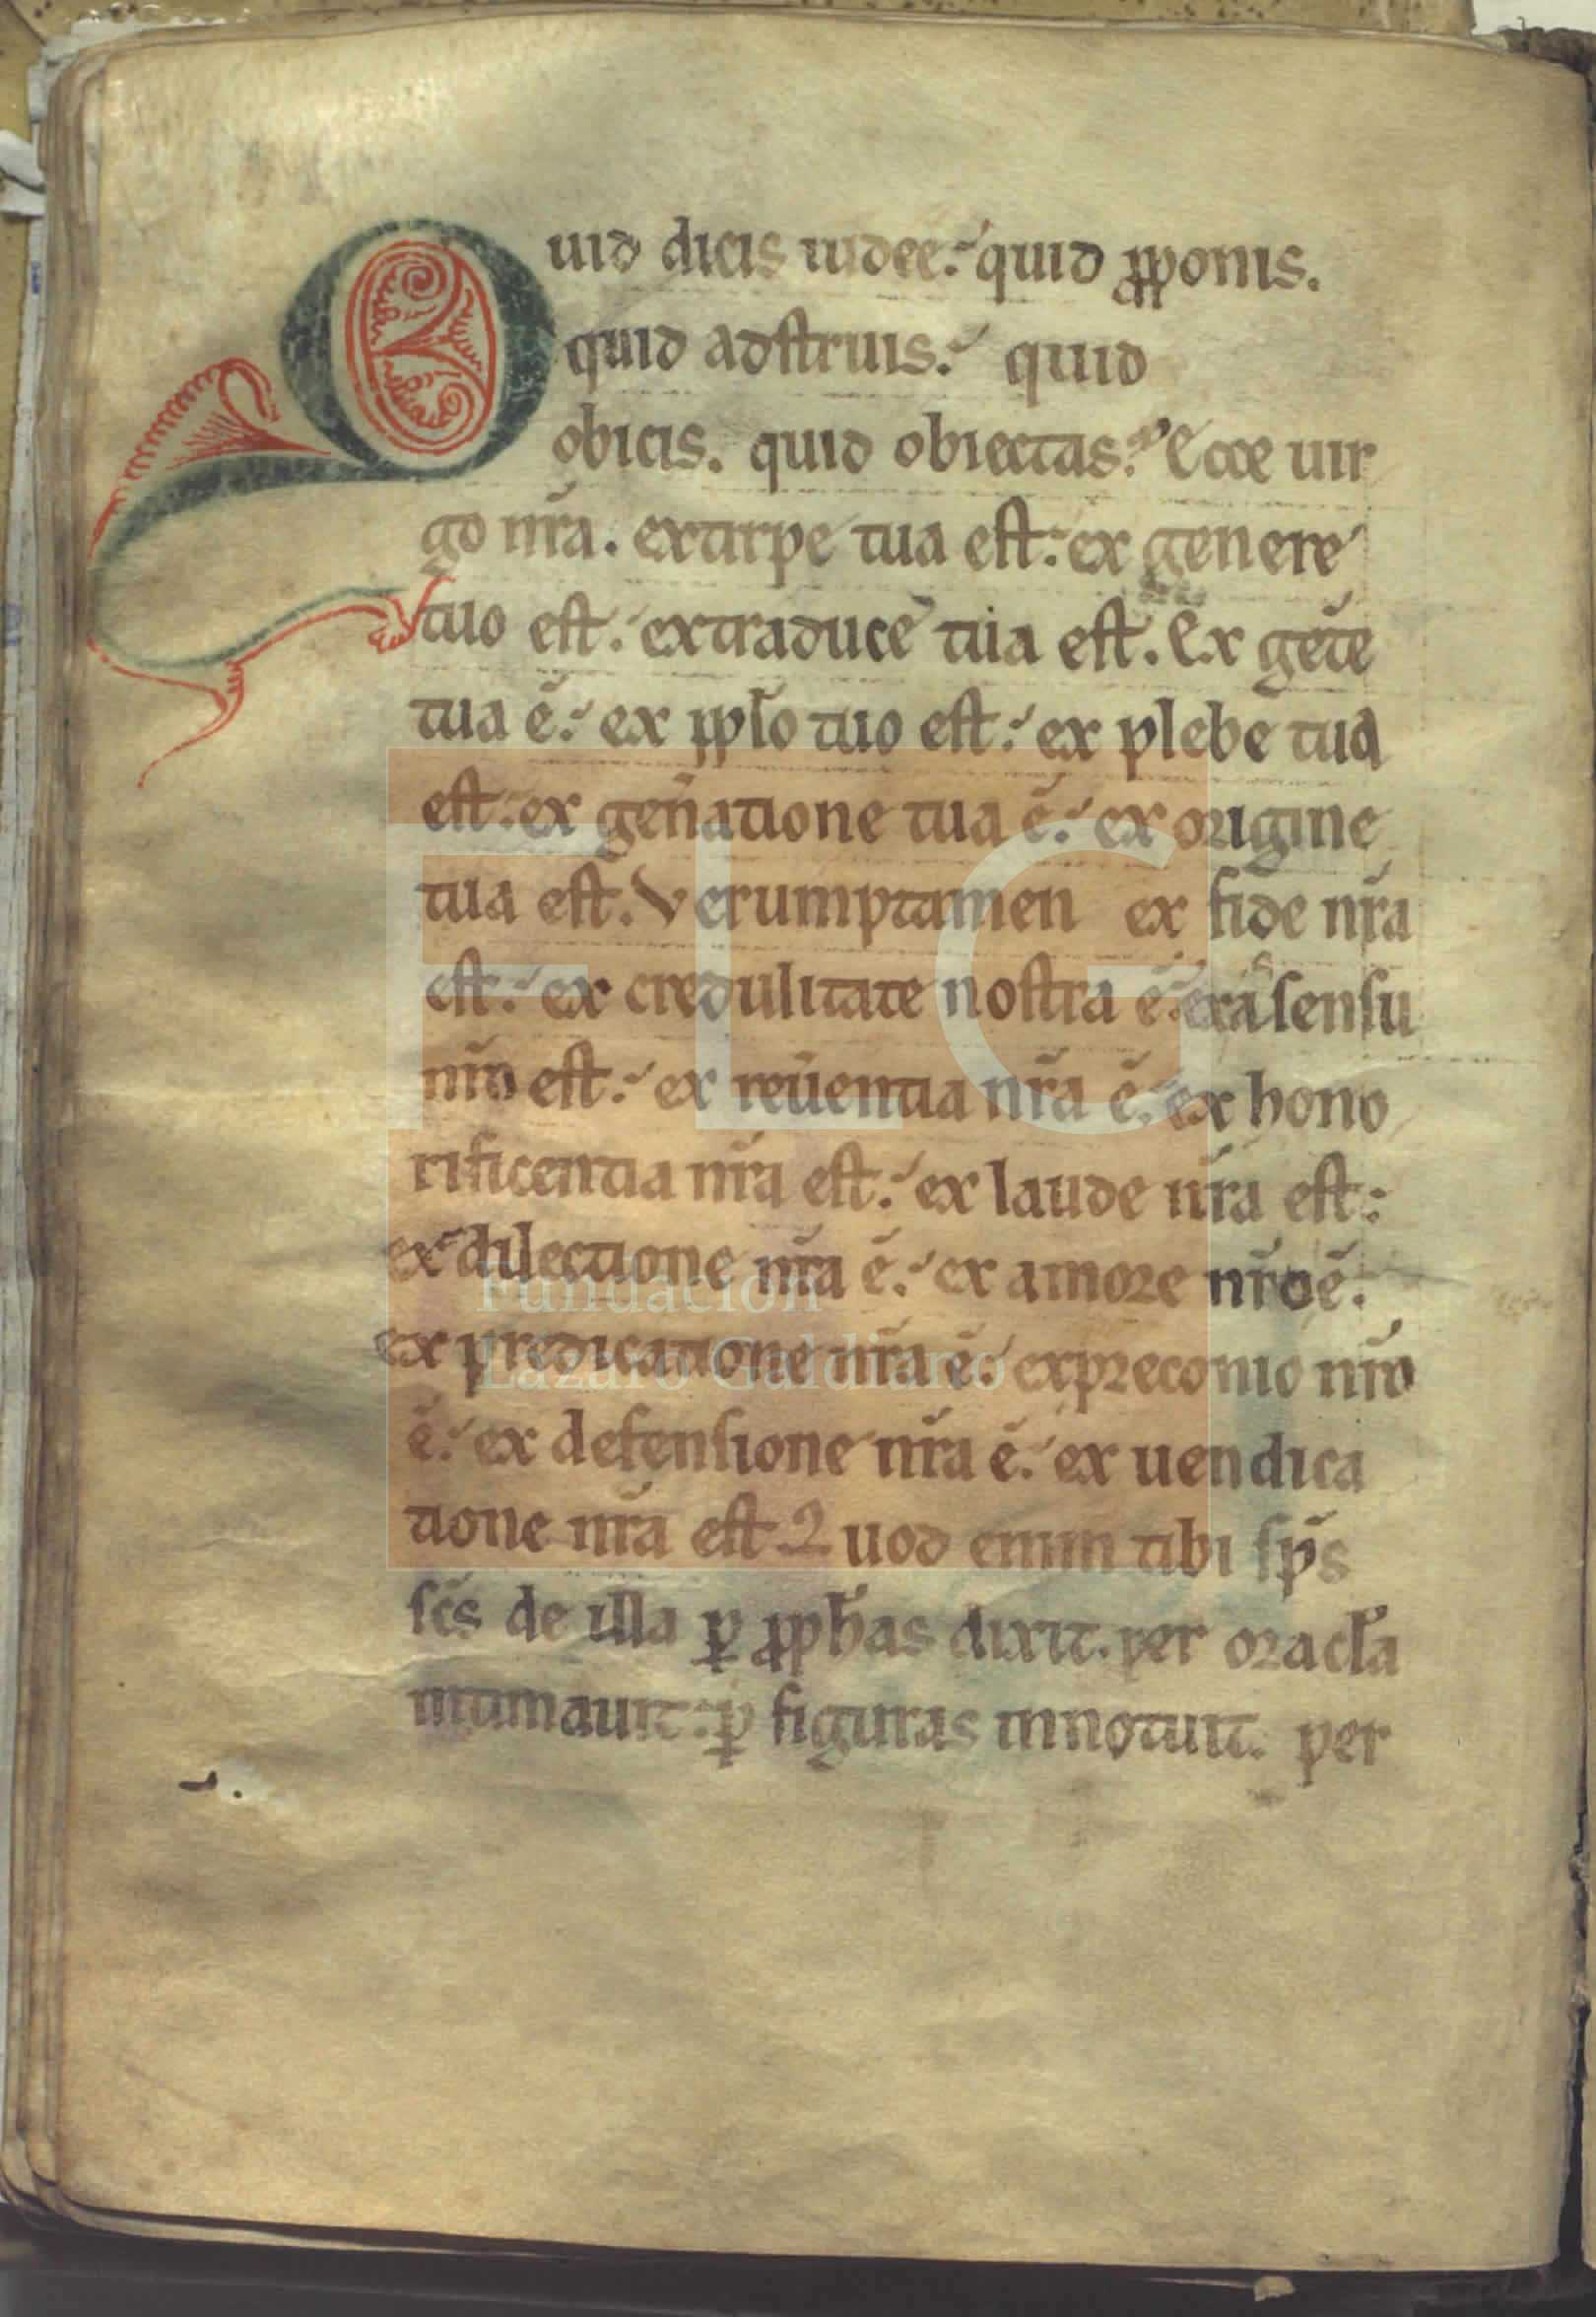 Quid dicis iudee. quid ꝓponis.
quid adstruis. quid
obicis. quid obiectas. Ecce uir
go nr̄a. extirpe tua est. ex genere
tuo est. extraduce tua est. Ex gēte
tua ē. ex pplo tuo est. ex plebe tua
est. ex gen̄atione tua ē. ex origine
tua est. Verumptamen ex fide nr̄a
est. ex credulitate nostra ē. sensu
nr̄o est. ex reūentia nr̄a ē. ex hono
rificentia nr̄a est. ex laude nr̄a est:
ex dilectione nr̄a ē. ex amore nr̄o ē.
ex predicatione nr̄a ē. expreconio nr̄o
ē. ex defensione nr̄a ē. ex uendica
tione nr̄a est Quod enim tibi sp̄s
sc̄s de illa ꝑ ꝓph̄as dixit. per oracl̄a
intimauit. ꝑ figuras innotuit. per
FLG
Fundación
Lázaro Galdiano